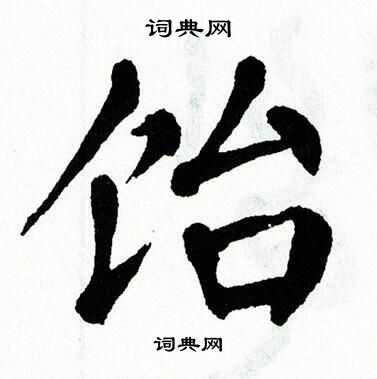 词典网
饴
词典网